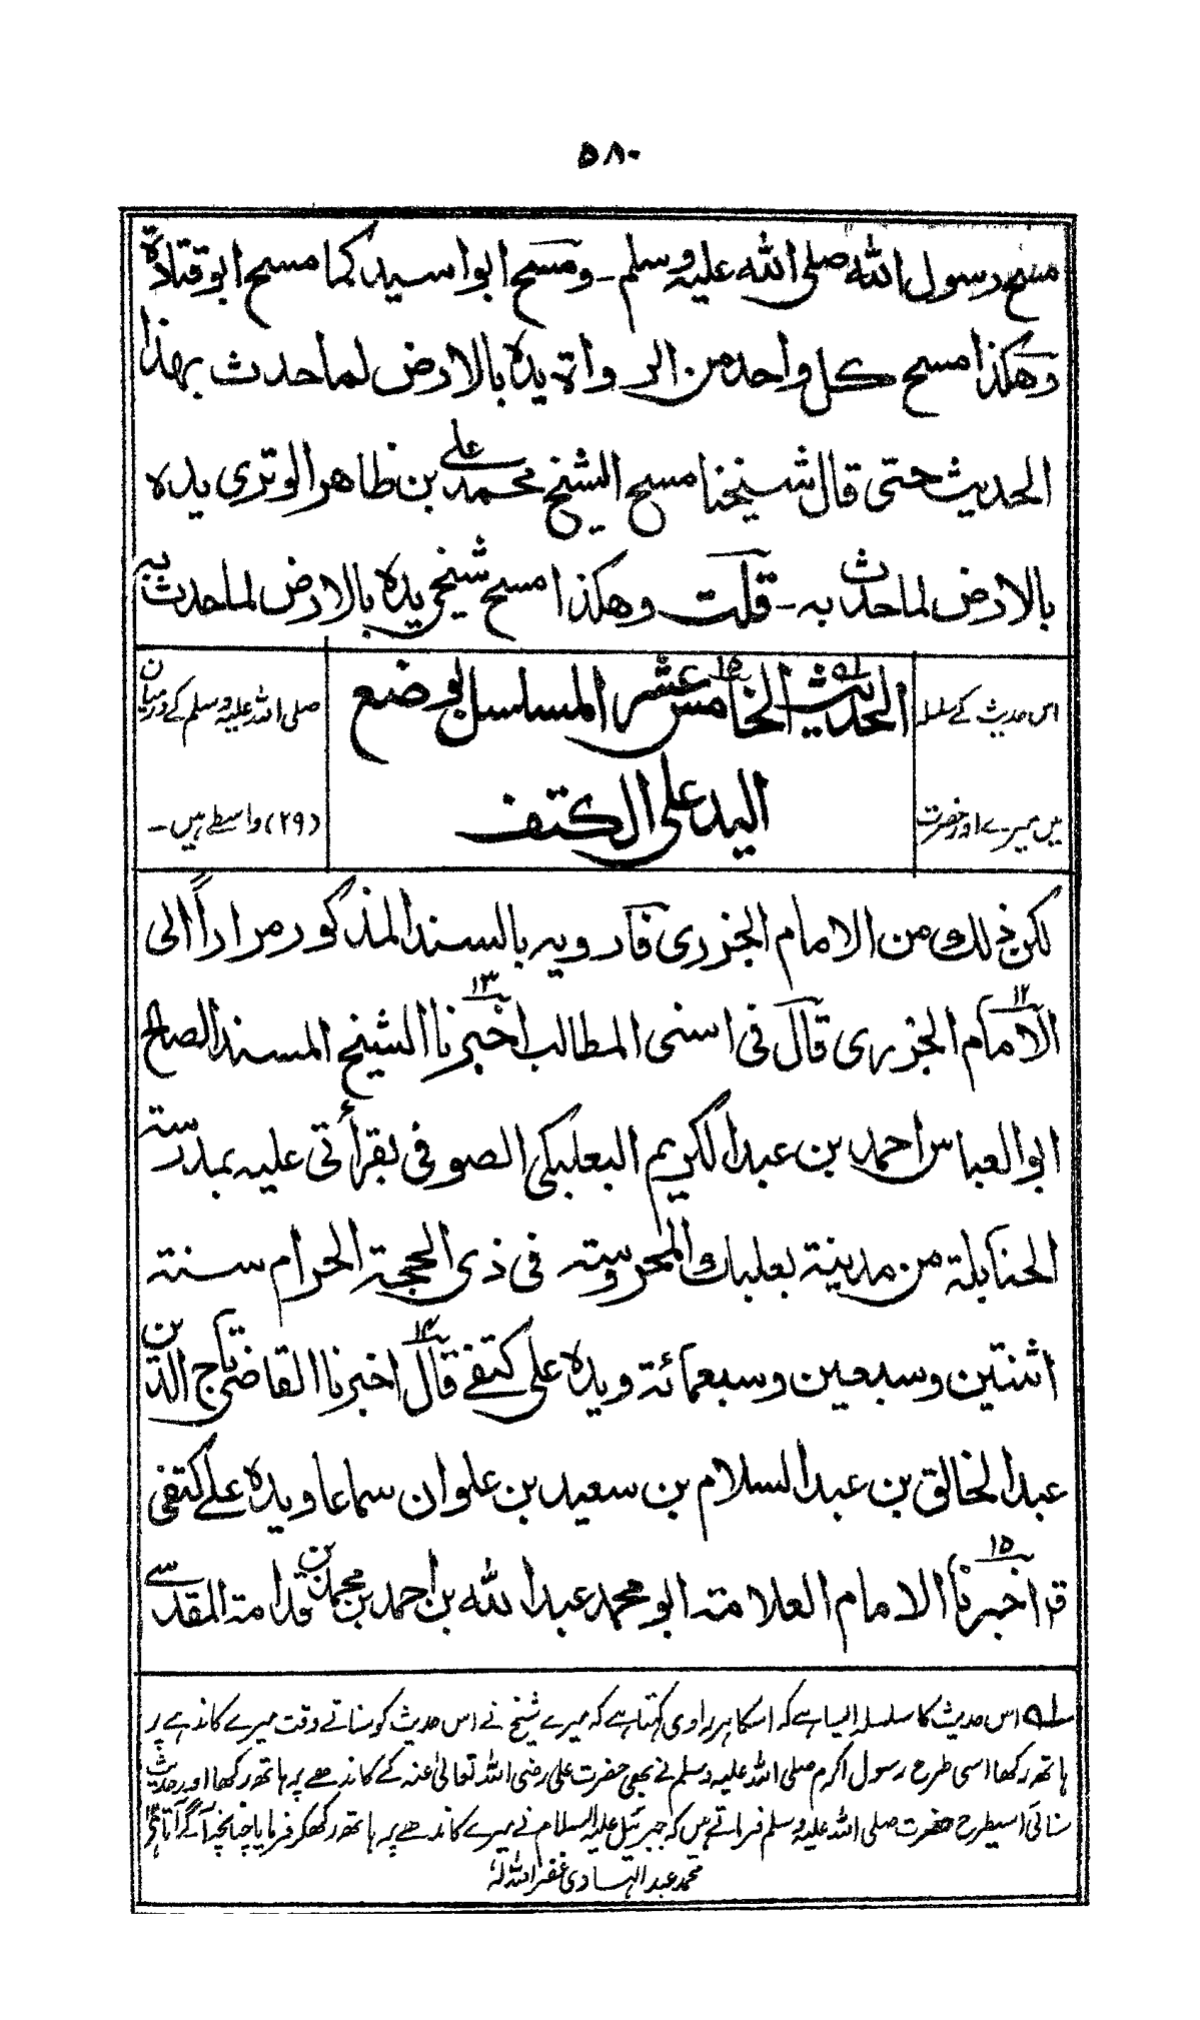 ۵۸۰
مسح رسول الله صلى الله عليه وسلم ـ ومسح ابو اسيد كما مسح ابو قتادة
وهكذا مسح كل واحد من الرواة يده بالارض لما حدث بهذا
الحديث حتى قال شيخنا مسح الشيخ محمد على بن ظاهر الوترى يده
بالارض لما حدث به ـ قلت وهكذا مسح شيخى يده بالارض لما حدث به
اس حدیث کے سلسلہ
میں میرے اور حضرت
الحديث الخامس عشر ۱۵ المسلسل بوضع
اليد على الكتف
صلی اللہ علیہ وسلم کے درمیان
(۲۹) واسطے ہیں ـ
لكن ذلك من الامام الجزرى فارويه بالسند المذكور مرارا الى
الامام الجزرى ۱۲ قال فى اسنى المطالب اخبرنا ۱۳ الشيخ المسند الصالح
ابو العباس احمد بن عبد الكريم البعلبكى الصوفى بقرأتى عليه بمدرسة
الحنابلة من مدينة بعلبك المحروسة فى ذى الحجة الحرام سنة
اثنتين وسبعين وسبعمائة ويده على كتفے قال ۱۴ اخبرنا القاضى تاج الدين
عبد الخالق بن عبد السلام بن سعيد بن علوان سماعا ويده علے كتفى
قد اخبرنا ۱۵ الامام العلامة ابو محمد عبد الله بن احمد بن محمد بن قدامة المقدسے
لہ اس حدیث کا سلسلہ ایسا ہے کہ اسکا ہر راوی کہتا ہے کہ میرے شیخ نے اس حدیث کو سناتے وقت میرے کاندہے پر
ہاتھ رکھا اسی طرح رسول اکرم صلی اللہ علیہ وسلم نے بھی حضرت علی رضی اللہ تعالیٰ عنہ کے کاندھے پر ہاتھ رکھا اور حدیث
سنائی اسیطرح حضرت صلی اللہ علیہ وسلم فرماتے ہیں کہ جبرئیل علیہ السلام نے میرے کاندھے پر ہاتھ رکھکر فرمایا چنانچہ آگے آتا ہے
محمد عبد الہادی غفر اللہ لہٗ